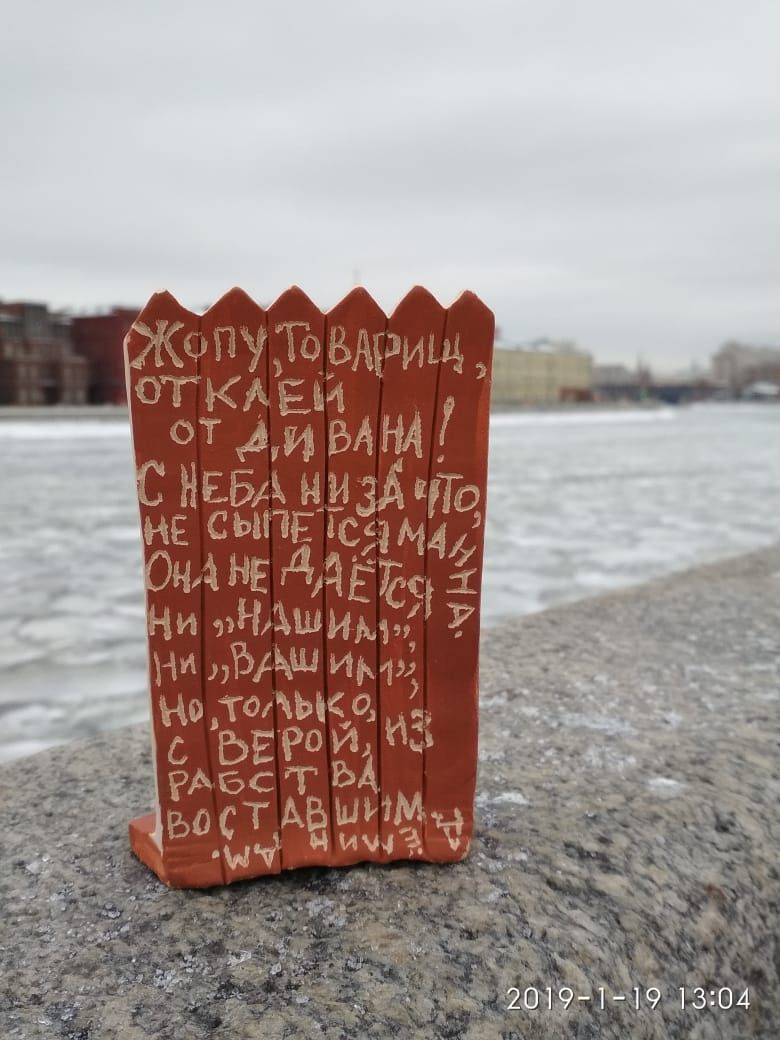 ЖОПУ, ТОВАРИЩ,
ОТКЛЕЙ
ОТ ДИВАНА!
С НЕБА НИ ЗА ЧТО,
НЕ СЫПЕТСЯ МАННА.
ОНА НЕ ДАЁТСЯ
НИ „НАШИМ”,
НИ „ВАШИМ”,
НО, ТОЛЬКО,
С ВЕРОЙ, ИЗ
РАБСТВА
ВОСТАВШИМ
2019-1-19 13:04